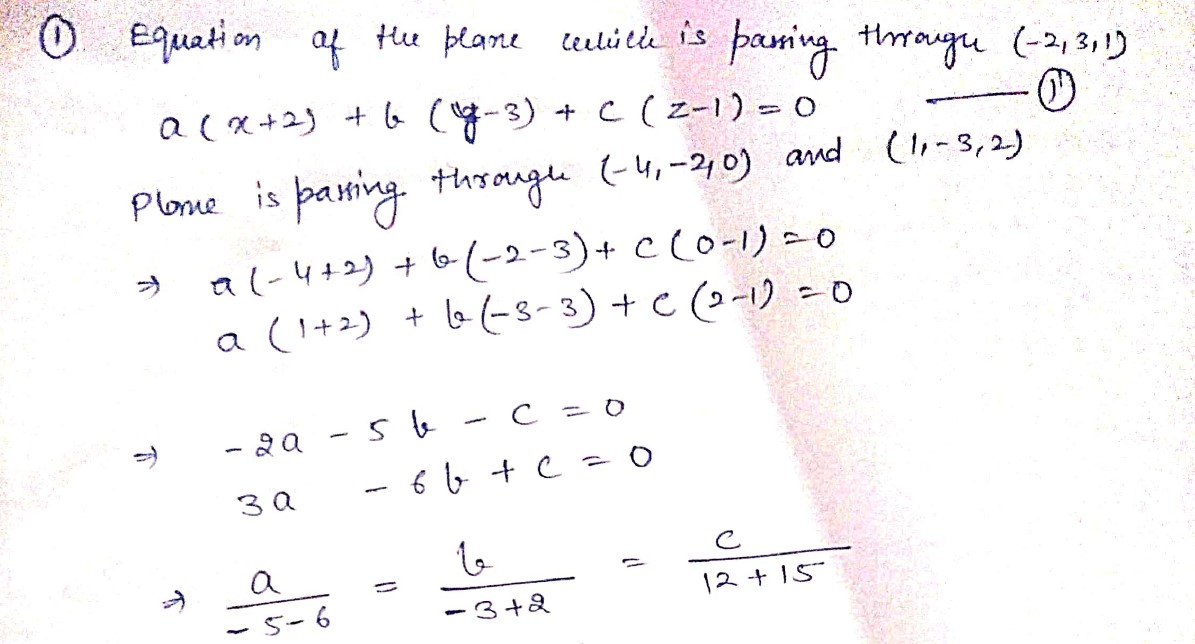 ① Equation of the plane which is passing through (-2, 3, 1)
a(x+2) + b(y-3) + c(z-1) = 0 —— ①
Plane is passing through (-4, -2, 0) and (1, -3, 2)
⇒ a(-4+2) + b(-2-3) + c(0-1) = 0
a(1+2) + b(-3-3) + c(2-1) = 0
⇒ -2a - 5b - c = 0
3a - 6b + c = 0
⇒ a/(-5-6) = b/(-3+2) = c/(12+15)